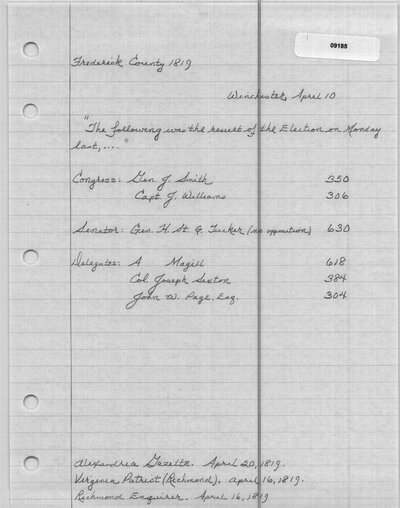 09185
Frederick County 1819
Winchester, April 10
"The following was the result of the Election on Monday
last, ...."
Congress: Gen J. Smith 350
Capt. J. Williams 306
Senator: Gen. H. St. G. Tucker (no opposition) 630
Delegates: A Magill 618
Col Joseph Sexton 384
John W. Page, Esq. 304
Alexandria Gazette. April 20, 1819.
Virginia Patriot (Richmond). April 16, 1819.
Richmond Enquirer. April 16, 1819